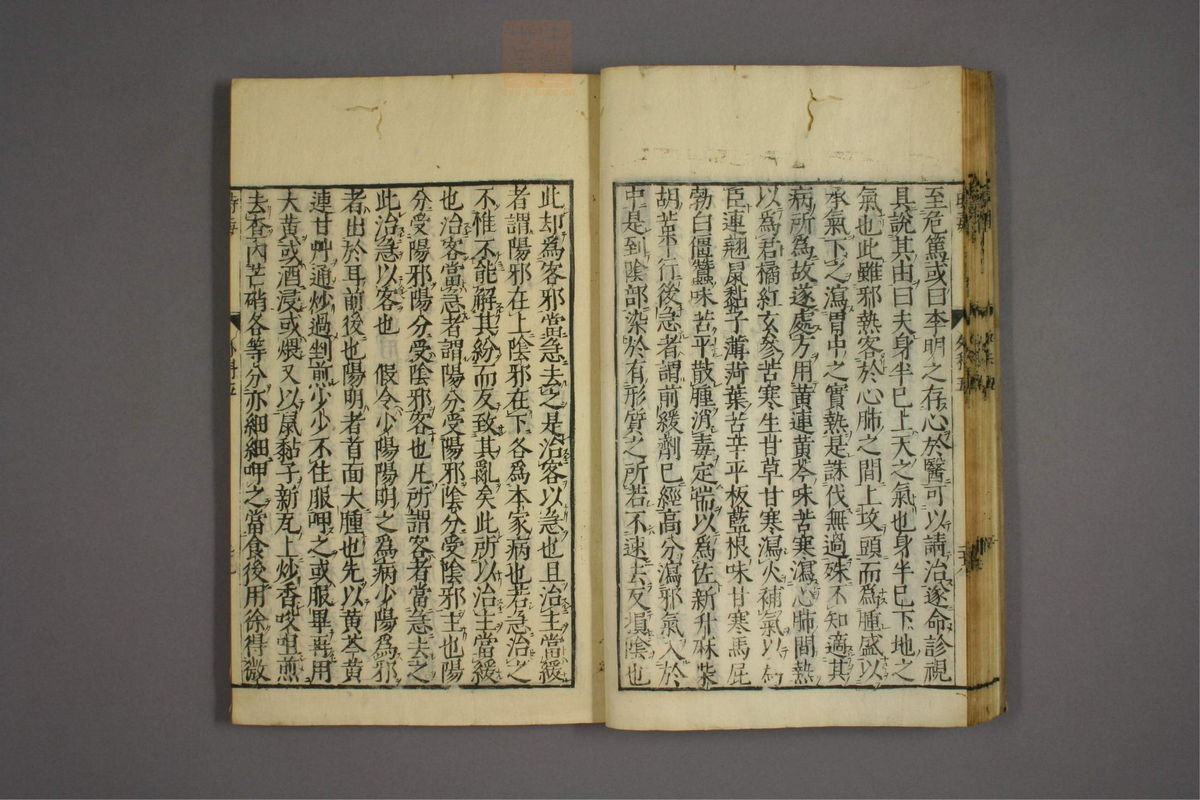 至危篤或曰李明之存心於醫可以請治遂命診視
具說其由曰夫身半已上天之氣也身半已下地之
氣也此雖邪熱客於心肺之間上攻頭而為腫盛以
承氣下之瀉胃中之實熱是誅伐無過殊不知適其
病所為故遂處方用黃連黃芩味苦寒瀉心肺間熱
以為君橘紅玄參苦寒生甘草甘寒瀉火補氣以為
臣連翹鼠黏子薄荷葉苦辛平板藍根味甘寒馬屁
勃白僵蠶味苦平散腫消毒定喘以為佐新升麻柴
胡苦平行後急者謂前緩劑已經高分瀉邪氣入於
中是到陰部染於有形質之所若不速去反損陰也
此却為客邪當急去之是治客以急也且治主當緩
者謂陽邪在上陰邪在下各為本家病也若急治之
不惟不能解其紛而反致其亂矣此所以治主當緩
也治客當急者謂陽分受陽邪陰分受陰邪主也陽
分受陽邪陽分受陰邪客也凡所謂客者當急去之
此治急以客也 假令少陽陽明之為病少陽為邪
者出於耳前後也陽明者首面大腫也先以黃芩黃
連甘艸通炒過剉煎少少不住服呷之或服畢再用
大黃或酒浸或煨又以鼠黏子新瓦上炒香㕮咀煎
去查內芒硝各等分亦細細呷之當食後用徐得微